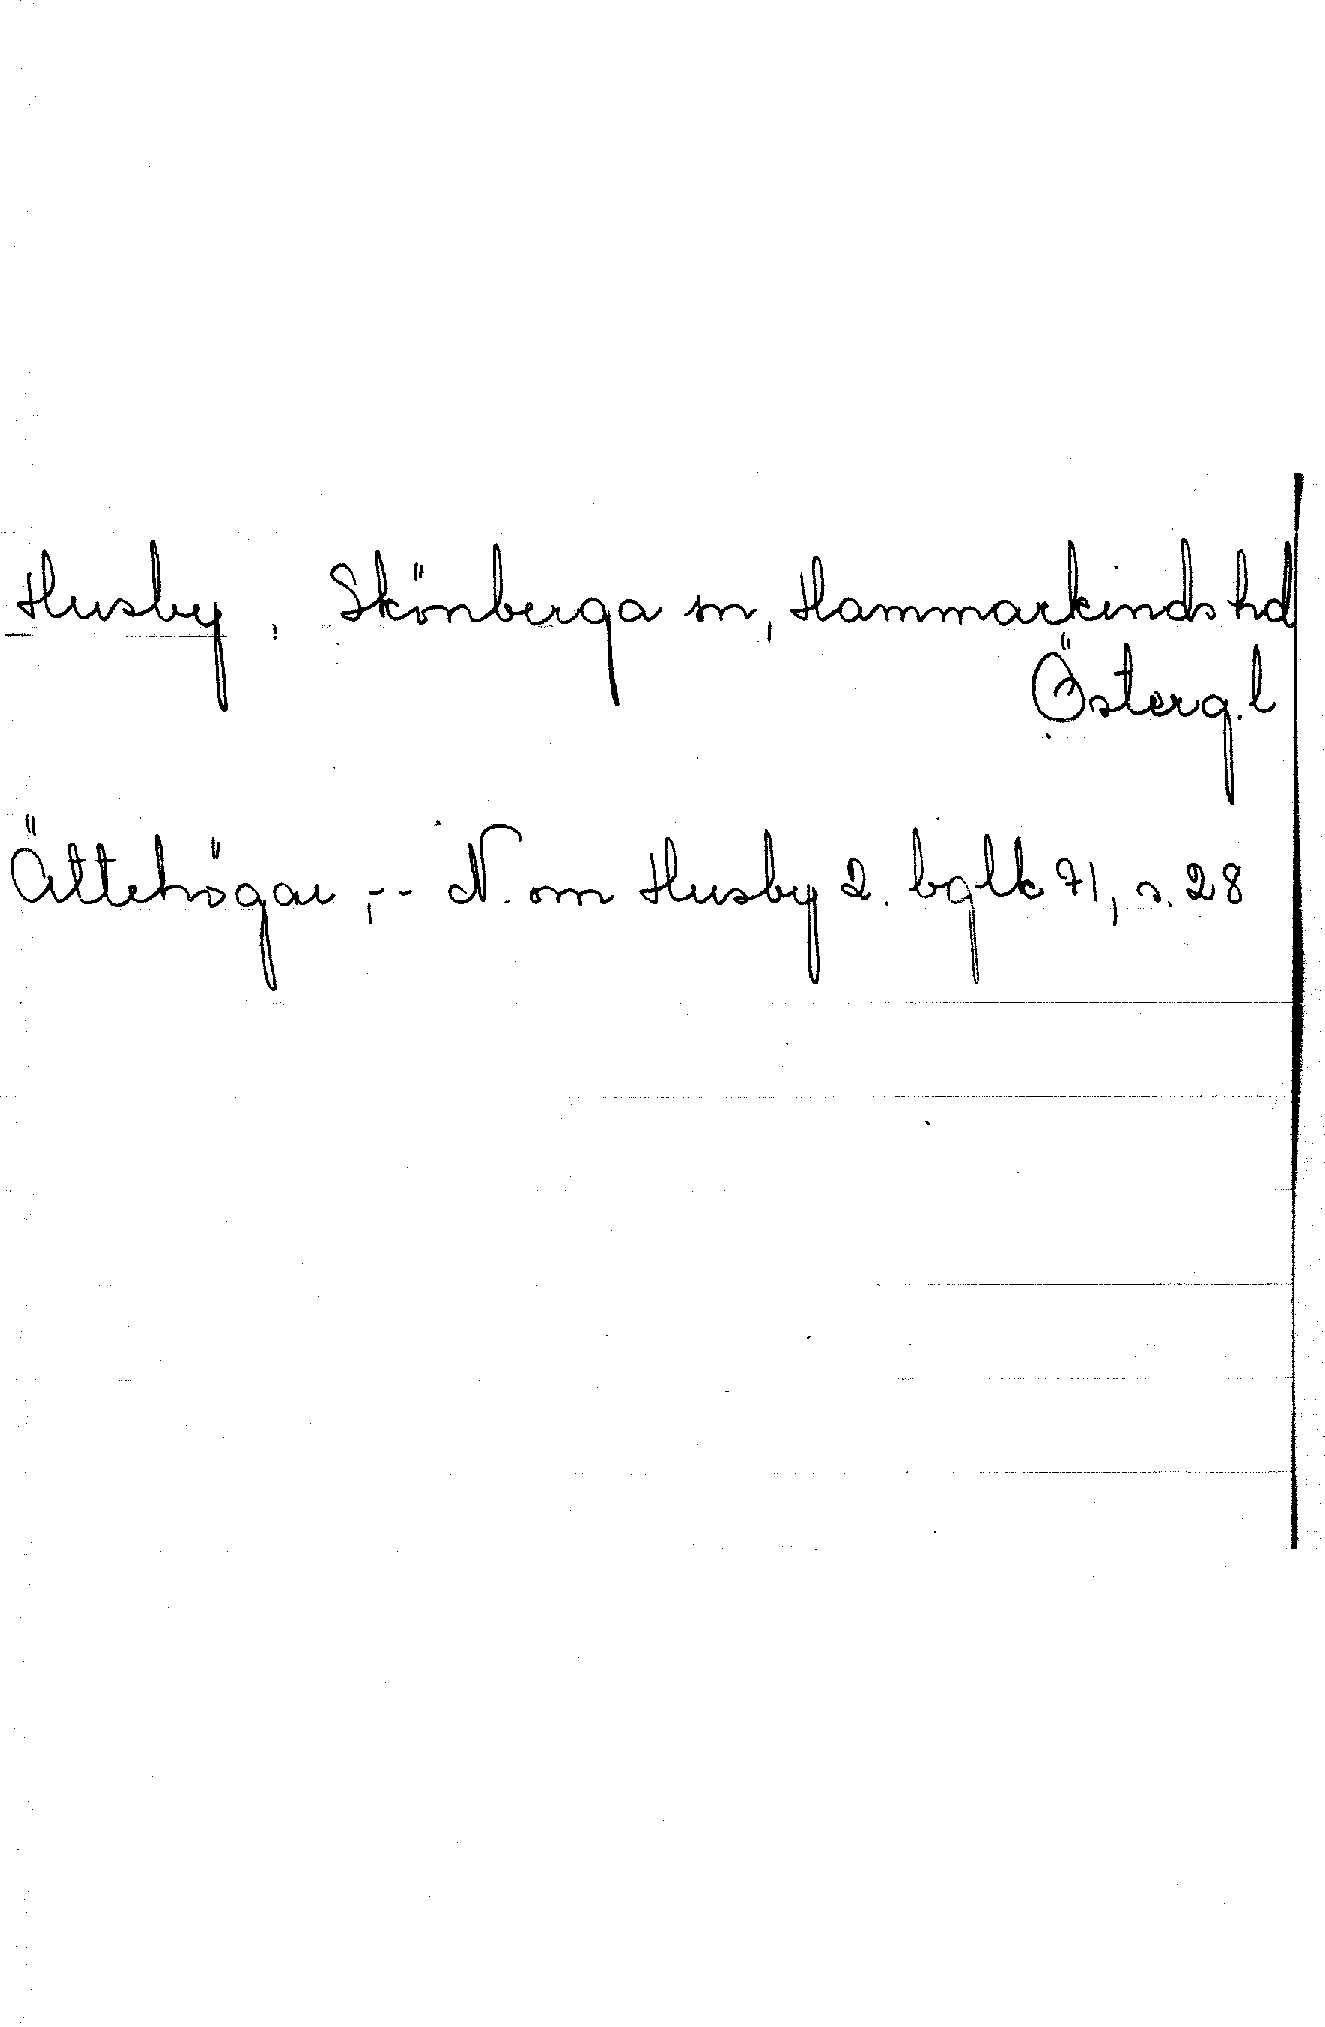 Husby, Skönberga sn, Hammarkinds hd
Österg. l
Ättehögar, -- N. om Husby 2. bglk 71, s. 28